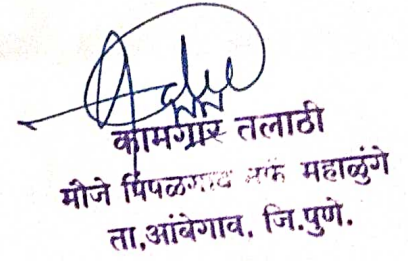 कामगार तलाठी
मौजे पिंपळगाव तर्फे महाळुंगे
ता.आंबेगाव. जि.पुणे.